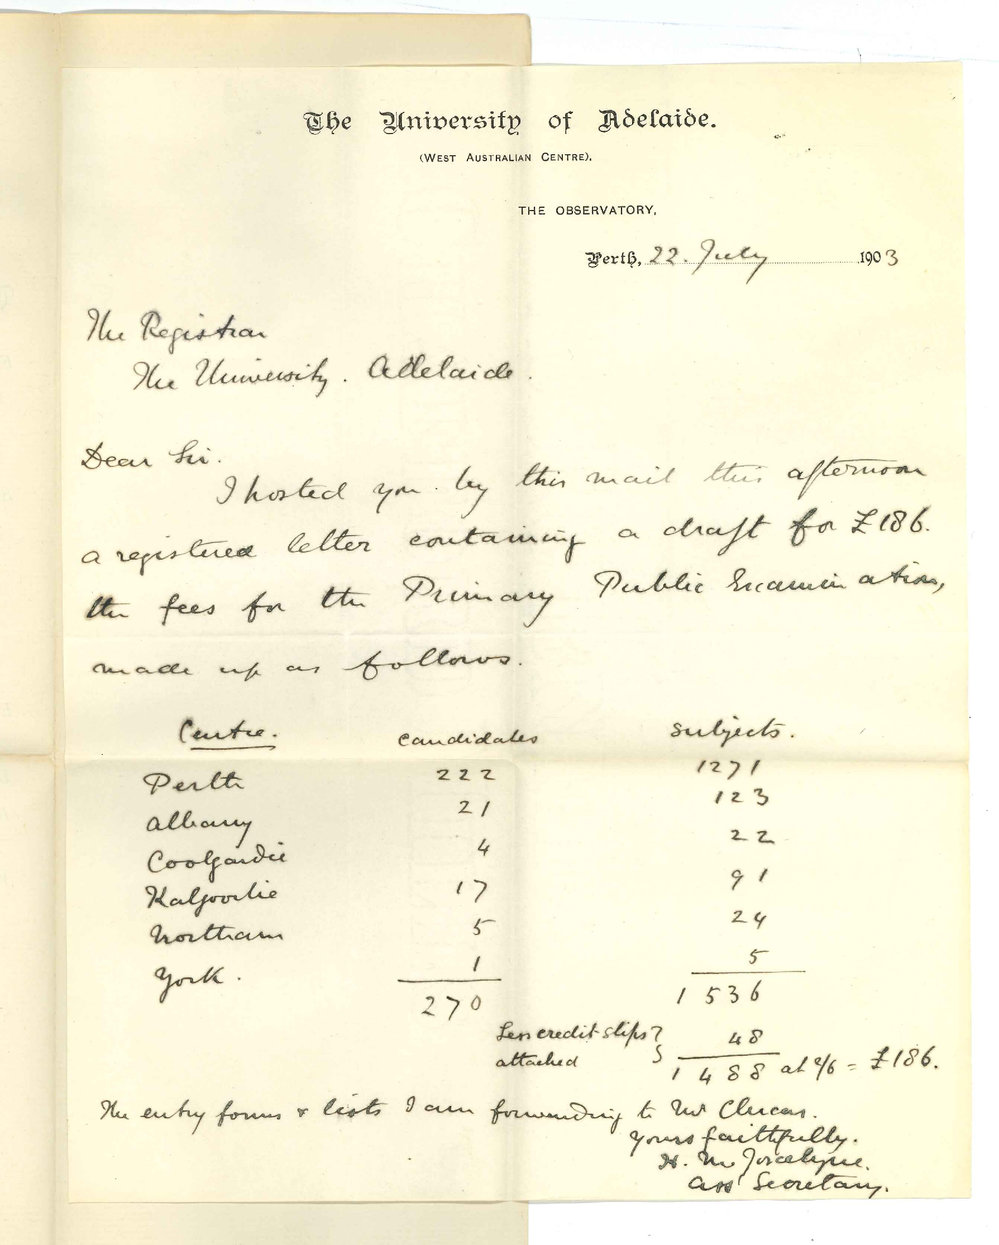 The University of Adelaide.
(WEST AUSTRALIAN CENTRE).
THE OBSERVATORY,
Perth, 22. July 1903
The Registrar
The University. Adelaide.
Dear Sir.
I posted you by this mail this afternoon
a registered letter containing a draft for £186.
the fees for the Primary Public Examination,
made up as follows.
Centre. candidates subjects.
Perth 222 1271
Albany 21 123
Coolgardie 4 22
Kalgoorlie 17 91
Northam 5 24
York. 1 5
270 1536
Less credit slips } 48
attached 1488 at 2/6 = £186.
The entry forms & lists I am forwarding to Mr Clucas.
Yours faithfully.
H. M.
Asst Secretary.